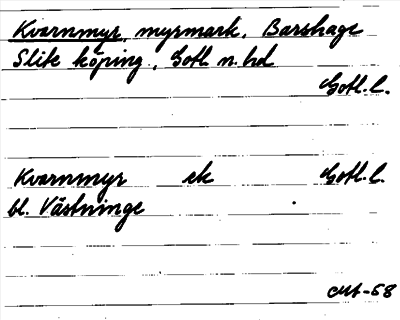 Kvarnmyr, myrmark, Barshage
Slite köping, Gotl. n. hd
Gotl. l.
Kvarnmyr ek Gotl. l.
bl. Västninge
-68